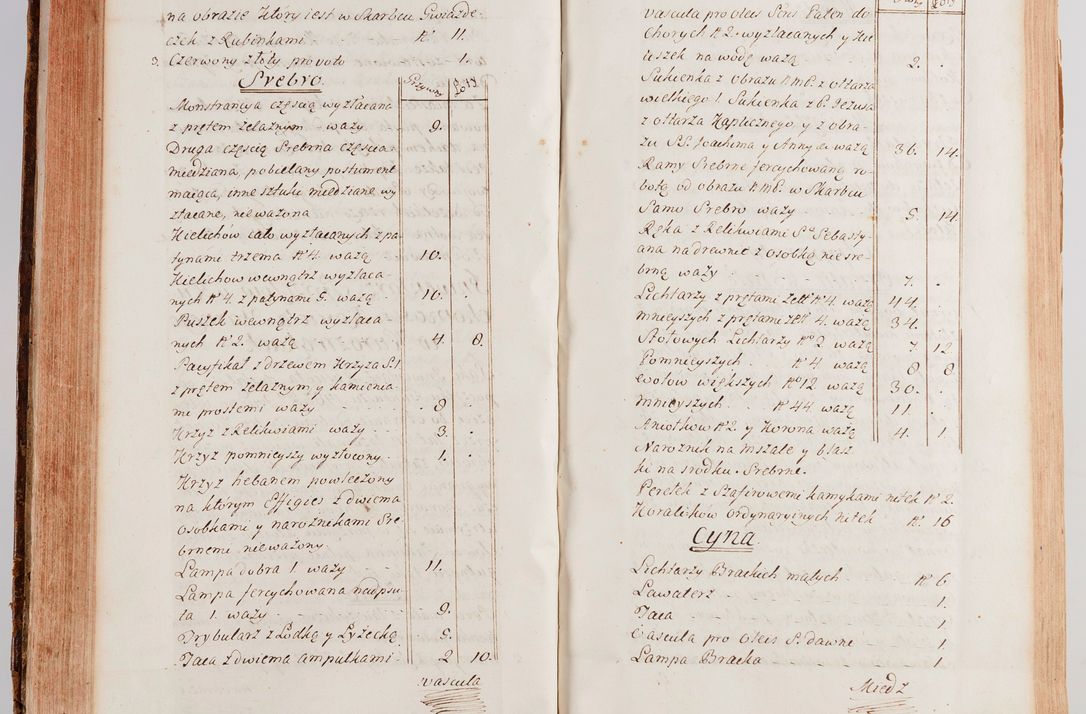 na obrazie który iest w Skarbcu Gwiazde-
czek z Rubinkami N° 11.
3. Czerwony złoty pro voto 1.
Srebro. Grzywny Łoty
Monstrancya częscią wyzłacana
z prętem żelaznym waży 9. .
Druga częscią Srebrna częscia
miedziana, pobielany postument
maiąca, inne sztuki miedziane wy
złacane, nie ważona
Kielichów cało wyzłacanych z pa-
tynami trzema N° 4. ważą 10. .
Kielichow wewnątrz wyzłaca-
nych N° 4. z patynami 5. ważą 10. .
Puszek wewnątrz wyzłaca
nych N° 2. ważą 4. 8.
Pacyfikał z drzewem Krzyża S.
z prętem żelaznym y kamienia-
mi prostemi waży 8 .
Krzyż z Relikwiami waży 3. .
Krzyż pomnieyszy wyzłocony 1. .
Krzyż hebanem powleczony
na którym Effigies z dwiema
osobkami y narożnikami Sre
brnemi nieważony
Lampa dobra 1. waży 11.
Lampa fercychowana nadpsu
ta 1. waży 9.
Trybularz z Łodką y Łyżecką 5.
Taca z dwiema ampułkami 2 10.
vascula
vascula pro oleis Seis Paten do
Chorych N° 2. wyzłacanych y Ku
biszek na wodę ważą 2. .
Sukienka z obrazu NMP. z ołtarza
wielkiego 1. Sukienka z P. Jezusa
z ołtarza Kaplicznego y z obra-
zu SS. Joachima y Anny ważą 36. 14.
Ramy Srebrne fercychowaną ro-
botą od obrazu NMP. w Skarbcu
Samo Srebro waży 5. 14.
Ręka z Relikwiami Sgo Sebasty-
ana na drewnie z osobką nie sre-
brną waży 7. .
Lichtarzy z prętami żel: N° 4. ważą 44. .
mnieyszych z prętami żel: 4. ważą 34. .
Stołowych Lichtarzy N° 2. ważą 7. 12
Pomnieyszych N° 4. ważą 8 8
wotow większych N° 12. ważą 30. .
mnieyszych N° 44. ważą 11. .
Aniołkow N° 2. y Korona ważą 4. 1.
Narożnik na mszale y blasz
ki na srodku Srebrne.
Perełek z Szafirowemi kamykami nitek N° 2.
Koralikow ordynaryinych nitek N°. 16
Cyna.
Lichtarzy Brackich małych N° 6
Lawaterz 1.
Taca 1.
Vascula pro Oleis S. dawne 1.
Lampa Bracka 1.
Miedź